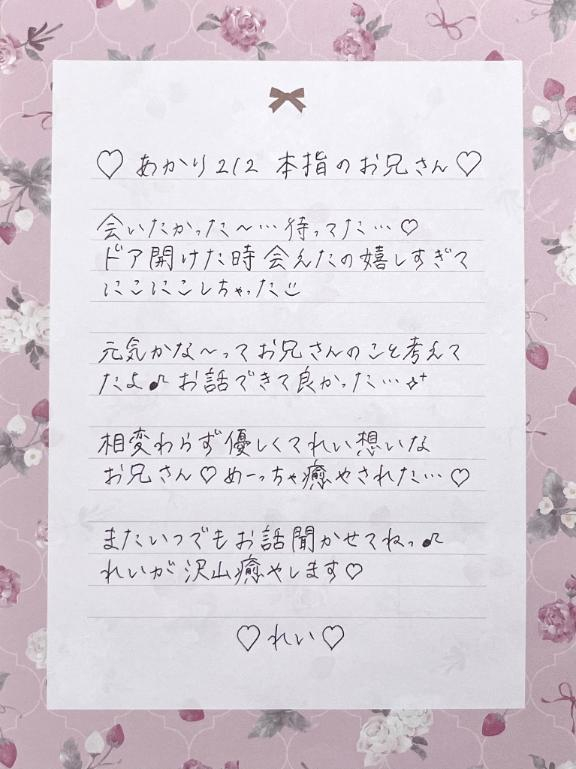 ♡ あかり212 本指のお兄さん ♡
会いたかった〜…待ってた…♡
ドア開けた時会えたの嬉しすぎて
にこにこしちゃった
元気かな〜ってお兄さんのこと考えて
たよ♪ お話できて良かった…✧⁺
相変わらず優しくてれい想いな
お兄さん♡めーっちゃ癒やされた…♡
またいつでもお話聞かせてねっ♪
れいが沢山癒やします♡
♡れい♡